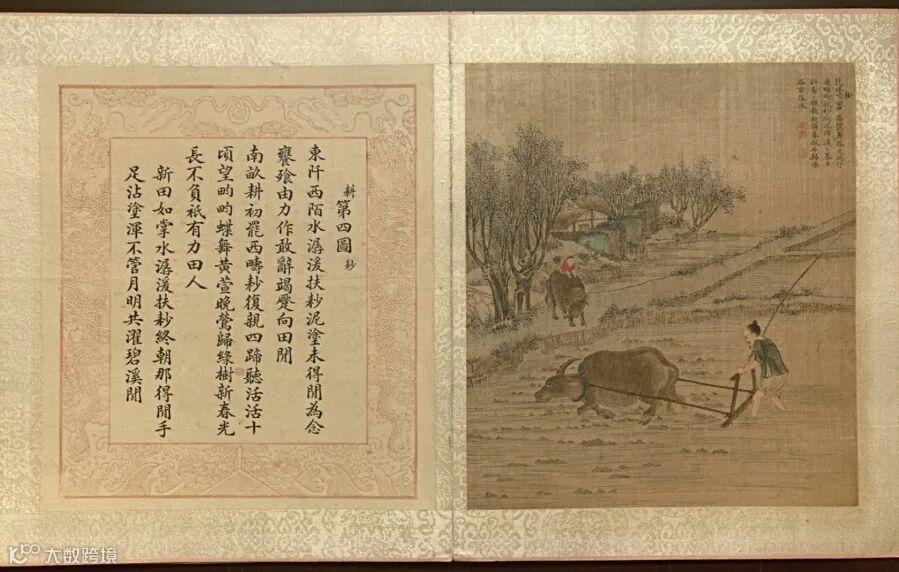 耕第四圖 耖
東阡西陌水潺湲扶耖泥塗未得閒為念
饔飧由力作敢辭竭蹷向田閒
南畝耕初罷西疇耖復親四蹄聽活活十
頃望畇畇蝶舞黃萱晚鶯歸綠樹新春光
長不負祇有力田人
新田如掌水潺湲扶耖終朝那得閒手
足沾塗渾不管月明共濯碧溪閒
耖
浴前溪水
大数跨境